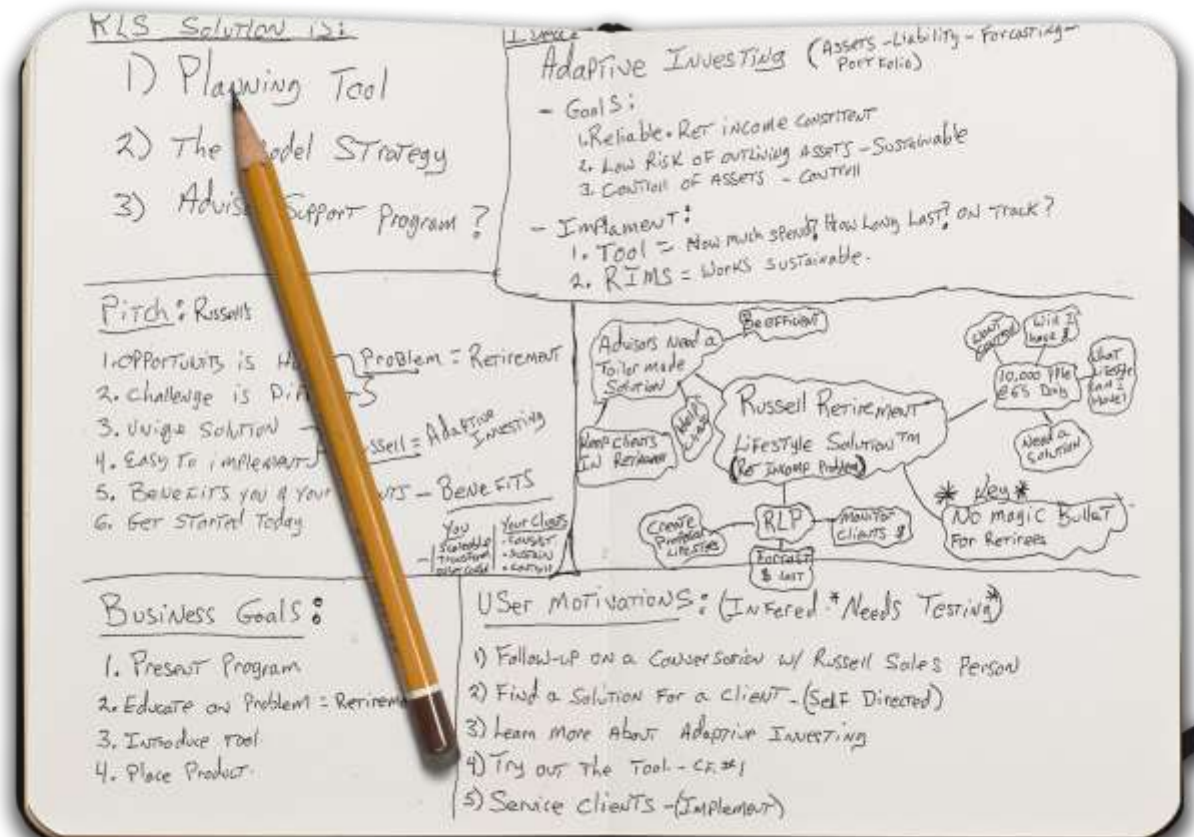 RLS Solution is:
1) Planning Tool
2) The Model STrategy
3) Advisor Support Program ?
Adaptive Investing (Assets - Liability - Forcasting -
Portfolio)
- Goals:
1. Reliable • Ret income constitent
2. Low Risk of outliving Assets - Sustainable
3. Controll of Assets - Controll
- Implament:
1. Tool = How much spend? How Long Last? on Track?
2. RIMS = Works sustainable.
Pitch: Russells
1. opportunity is
Problem = Retirement
2. Challenge is
3. Uniqe Solution
= Adaptive
Investing
4. Easy to implement
5. Benefits you & your
- Benefits
6. Get Started Today
You
Your Clients
Scaleable
Transform
• Consist
• Sustain
• Controll
Advisors Need a
Tailor made
Solution
Be efficient
Keep Clients
In Retirement
Help
Russell Retirement
Lifestyle Solution™
(Ret Income Problem)
RLP
Create
Lifestyles
Monitor
Clients $
Forcast
$ Last
Want
Control
Will I
have $
10,000 PPle
@65 Daily
What
Lifestyle
can I
Have?
Need a
Solution
* Key *
No magic Bullet
For Retirees
Business Goals:
1. Present Program
2. Educate on Problem = Retirem
3. Introduce Tool
4. Place Product.
User Motivations: (Infered *Needs Testing*)
1) Follow-up on a Conversation w/ Russell Sales Person
2) Find a Solution For a client - (Self Directed)
3) Learn More About Adaptive Investing
4) Try out The Tool -
5) Service Clients - (Implement)